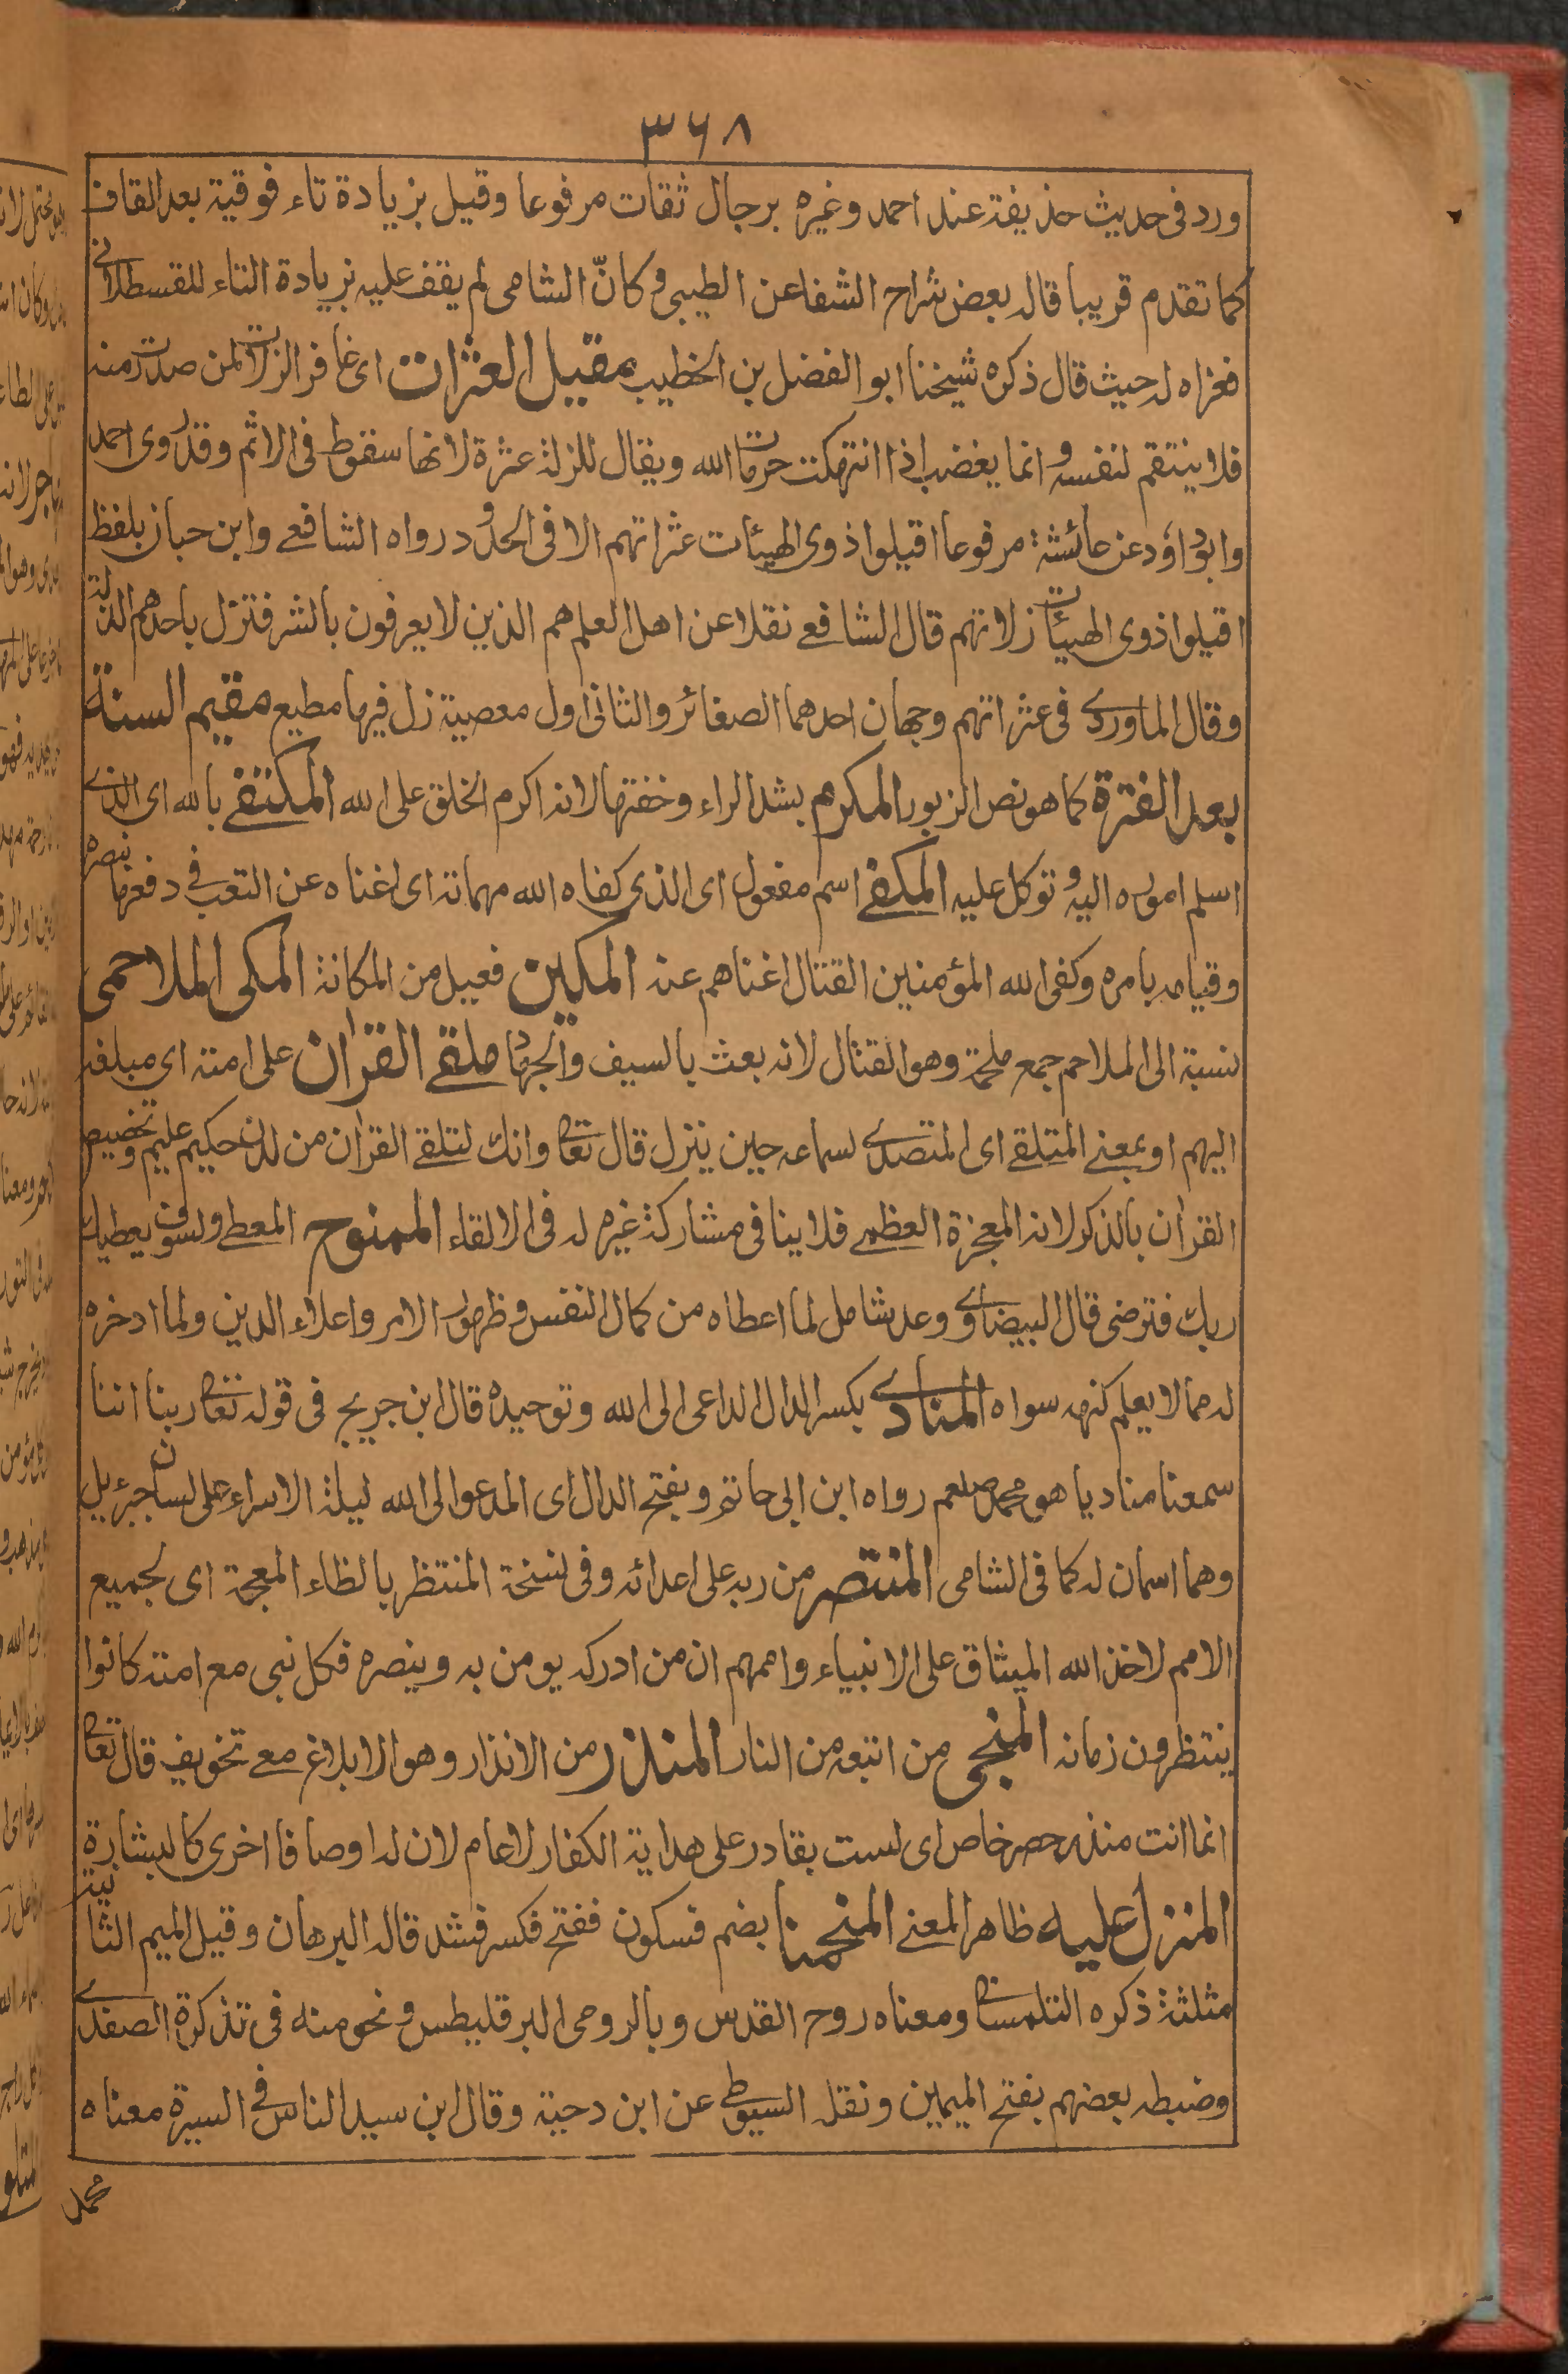 ٣٦٨
ورد فى حديث حذيفة عند احمد وغيره برجال ثقات مرفوعا وقيل بزيادة تاء فوقية بعد القاف
كما تقدم قريبا قاله بعض شراح الشفا عن الطيبى وكانّ الشامى لم يقف عليه بزيادة التاء للقسطلانى
فعزاه له حيث قال ذكره شيخنا ابو الفضل بن الخطيب مقيل العثرات اى غافر الزلات لمن صدرت منه
فلا ينتقم لنفسه وانما يغضب اذا انتهكت حرمات الله ويقال للزلة عثرة لانها سقوط فى الاثم وقد روى احمد
وابو داؤد عن عائشة مرفوعا اقيلوا ذوى الهيئات عثراتهم الا فى الحدود رواه الشافعے وابن حبان بلفظ
اقيلوا ذوى الهيئات زلاتهم قال الشافعے نقلا عن اهل العلم هم الذين لا يعرفون بالشر فتزل باحدهم الزلة
وقال الماوردے فى عثراتهم وجهان احدهما الصغائر والثانى اول معصية زل فيها مطيع مقيم السنة
بعد الفترة كما هو نص الزبور المكرم بشد الراء وخفتها لانه اكرم الخلق على الله المكتفے بالله اى الذے
اسلم اموره اليه وتوكل عليه المكفے اسم مفعول اى الذى كفاه الله مهماته اى اغناه عن التعب فى دفعها بنصره
وقيامه بامره وكفى الله المؤمنين القتال اغناهم عنه المكين فعيل من المكانة المكى الملاحمى
نسبة الى الملاحم جمع ملحمة وهو القتال لانه بعث بالسيف والجهاد ملقے القرآن على امته اى مبلغه
اليهم او بمعنے المتلقے اى المتصدے لسماعه حين ينزل قال تعا وانك لتلقے القرآن من لدن حكيم عليم وتخصيص
القرآن بالذكر لانه المعجزة العظمے فلا ينافى مشاركة غيره له فى الالقاء الممنوح المعطے ولسوف يعطيك
ربك فترضى قال البيضاوے وعد شامل لما اعطاه من كمال النفس وظهور الامر واعلاء الدين ولما ادخره
له مما لا يعلم كنهه سواه المنادے بكسر الدال الداعى الى الله وتوحيده قال ابن جريج فى قوله تعا ربنا اننا
سمعنا مناديا هو محمد صلعم رواه ابن ابى حاتم وبفتح الدال اى المدعو الى الله ليلة الاسراء على لسان جبرئيل
وهما اسمان له كما فى الشامى المنتصر من ربه على اعدائه وفى نسخة المنتظر بالظاء المعجمة اى لجميع
الامم لاخذ الله الميثاق على الانبياء واممهم ان من ادركه يومن به وينصره فكل نبى مع امته كانوا
ينتظرون زمانه المنجى من اتبعه من النار المنذر من الانذار وهو الابلاغ مع تخويف قال تعا
انما انت منذر حصر خاص اى لست بقادر على هداية الكفار لا عام لان له اوصافا اخرى كالبشارة
المنزل عليه ظاهر المعنے المنحمنا بضم فسكون ففتح فكسر فشد قاله البرهان وقيل الميم الثانية
مثلثة ذكره التلمسانى ومعناه روح القدس وبالرومى البرقليطس ونحو منه فى تذكرة الصفدے
وضبطه بعضهم بفتح الميمين ونقله السيوطى عن ابن دحية وقال ابن سيد الناس فى السيرة معناه
محمد